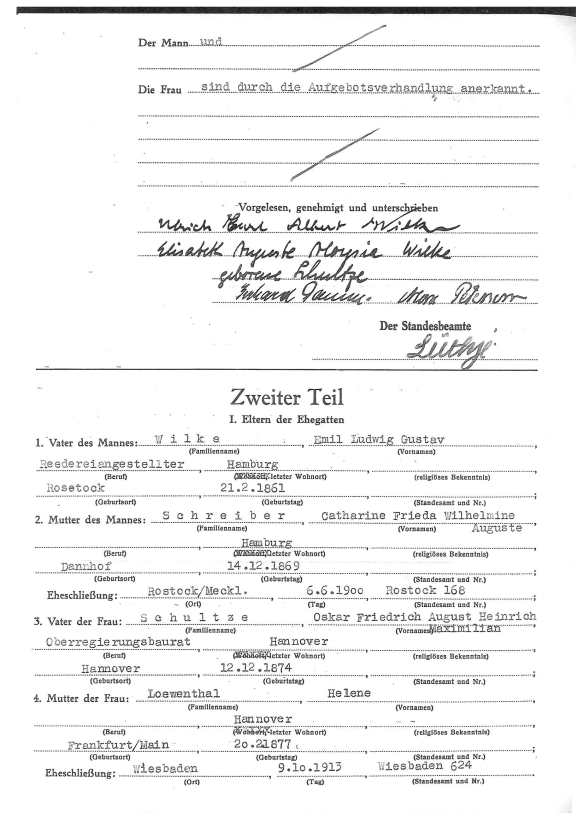 Der Mann und
Die Frau sind durch die Aufgebotsverhandlung anerkannt.
Vorgelesen, genehmigt und unterschrieben
Ulrich Karl Albert Wilke
Elisabeth Auguste Aloysia Wilke
geborene Schultze
Der Standesbeamte
Lüthje
Zweiter Teil
I. Eltern der Ehegatten
1. Vater des Mannes: Wilke, Emil Ludwig Gustav,
(Familienname) (Vornamen)
Reedereiangestellter, Hamburg,
(Beruf) (Wohnort, letzter Wohnort) (religiöses Bekenntnis)
Rosetock 21.2.1861
(Geburtsort) (Geburtstag) (Standesamt und Nr.)
2. Mutter des Mannes: Schreiber, Catharine Frieda Wilhelmine
(Familienname) (Vornamen) Auguste
Hamburg
(Beruf) (Wohnort, letzter Wohnort) (religiöses Bekenntnis)
Dannhof 14.12.1869
(Geburtsort) (Geburtstag) (Standesamt und Nr.)
Eheschließung: Rostock/Meckl., 6.6.1900 Rostock 168
(Ort) (Tag) (Standesamt und Nr.)
3. Vater der Frau: Schultze, Oskar Friedrich August Heinrich
(Familienname) (Vornamen) Maximilian
Oberregierungsbaurat, Hannover
(Beruf) (Wohnort, letzter Wohnort) (religiöses Bekenntnis)
Hannover, 12.12.1874
(Geburtsort) (Geburtstag) (Standesamt und Nr.)
4. Mutter der Frau: Loewenthal, Helene
(Familienname) (Vornamen)
Hannover
(Beruf) (Wohnort, letzter Wohnort) (religiöses Bekenntnis)
Frankfurt/Main, 20.21877,
(Geburtsort) (Geburtstag) (Standesamt und Nr.)
Eheschließung: Wiesbaden, 9.10.1913 Wiesbaden 624
(Ort) (Tag) (Standesamt und Nr.)